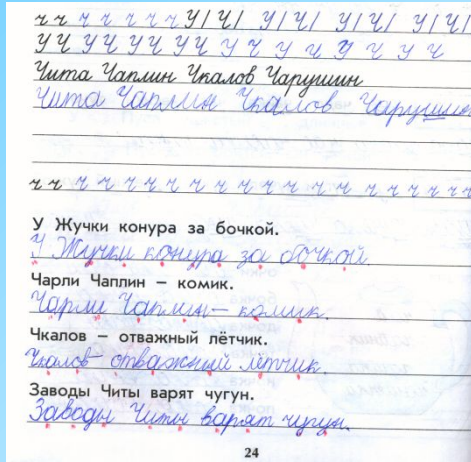 ч ч ч ч ч ч ч Ч/Ч/ Ч/Ч/ Ч/Ч/ Ч/Ч/
У Ч У Ч У Ч У Ч У Ч У Ч У Ч У Ч
Чита Чаплин Чкалов Чарушин
Чита Чаплин Чкалов Чарушин
ч ч ч ч ч ч ч ч ч ч ч ч ч ч ч ч ч ч ч ч
У Жучки конура за бочкой.
У Жучки конура за бочкой.
Чарли Чаплин – комик.
Чарли Чаплин – комик.
Чкалов – отважный лётчик.
Чкалов – отважный лётчик.
Заводы Читы варят чугун.
Заводы Читы варят чугун.
24